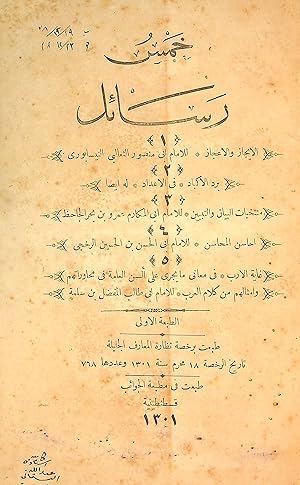 خمس
رسائل
﴿ ١ ﴾
الايجاز والاعجاز * للامام ابى منصور الثعالبى النيسابورى
﴿ ٢ ﴾
برد الاكباد * فى الاعداد * له ايضا
﴿ ٣ ﴾
منتخبات البيان والتبيين * للامام ابى المكارم عمرو بن بحر الجاحظ
﴿ ٤ ﴾
احاسن المحاسن * للامام ابى الحسن بن الحسين الرخجى
﴿ ٥ ﴾
غاية الارب * فى معانى ما يجرى على ألسن العامة فى محاوراتهم
وامثالهم من كلام العرب * للامام ابى طالب المفضل بن سلمة
الطبعة الاولى
طبعت برخصة نظارة المعارف الجليلة
تاريخ الرخصة ١٨ محرم سنة ١٣٠١ وعددها ٧٦٨
طبعت فى مطبعة الجوائب
قسطنطينية
١٣٠١